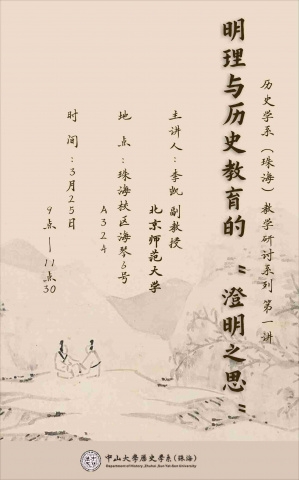 历史学系（珠海）教学研讨系列 第一讲
明理与历史教育的“澄明之思”
主讲人：李凯 副教授
北京师范大学
地 点：珠海校区海琴6号
A324
时 间：3月25日
9点—11点30
中山大學歷史學系(珠海)
Department of History, Zhuhai, Sun Yat-Sen University